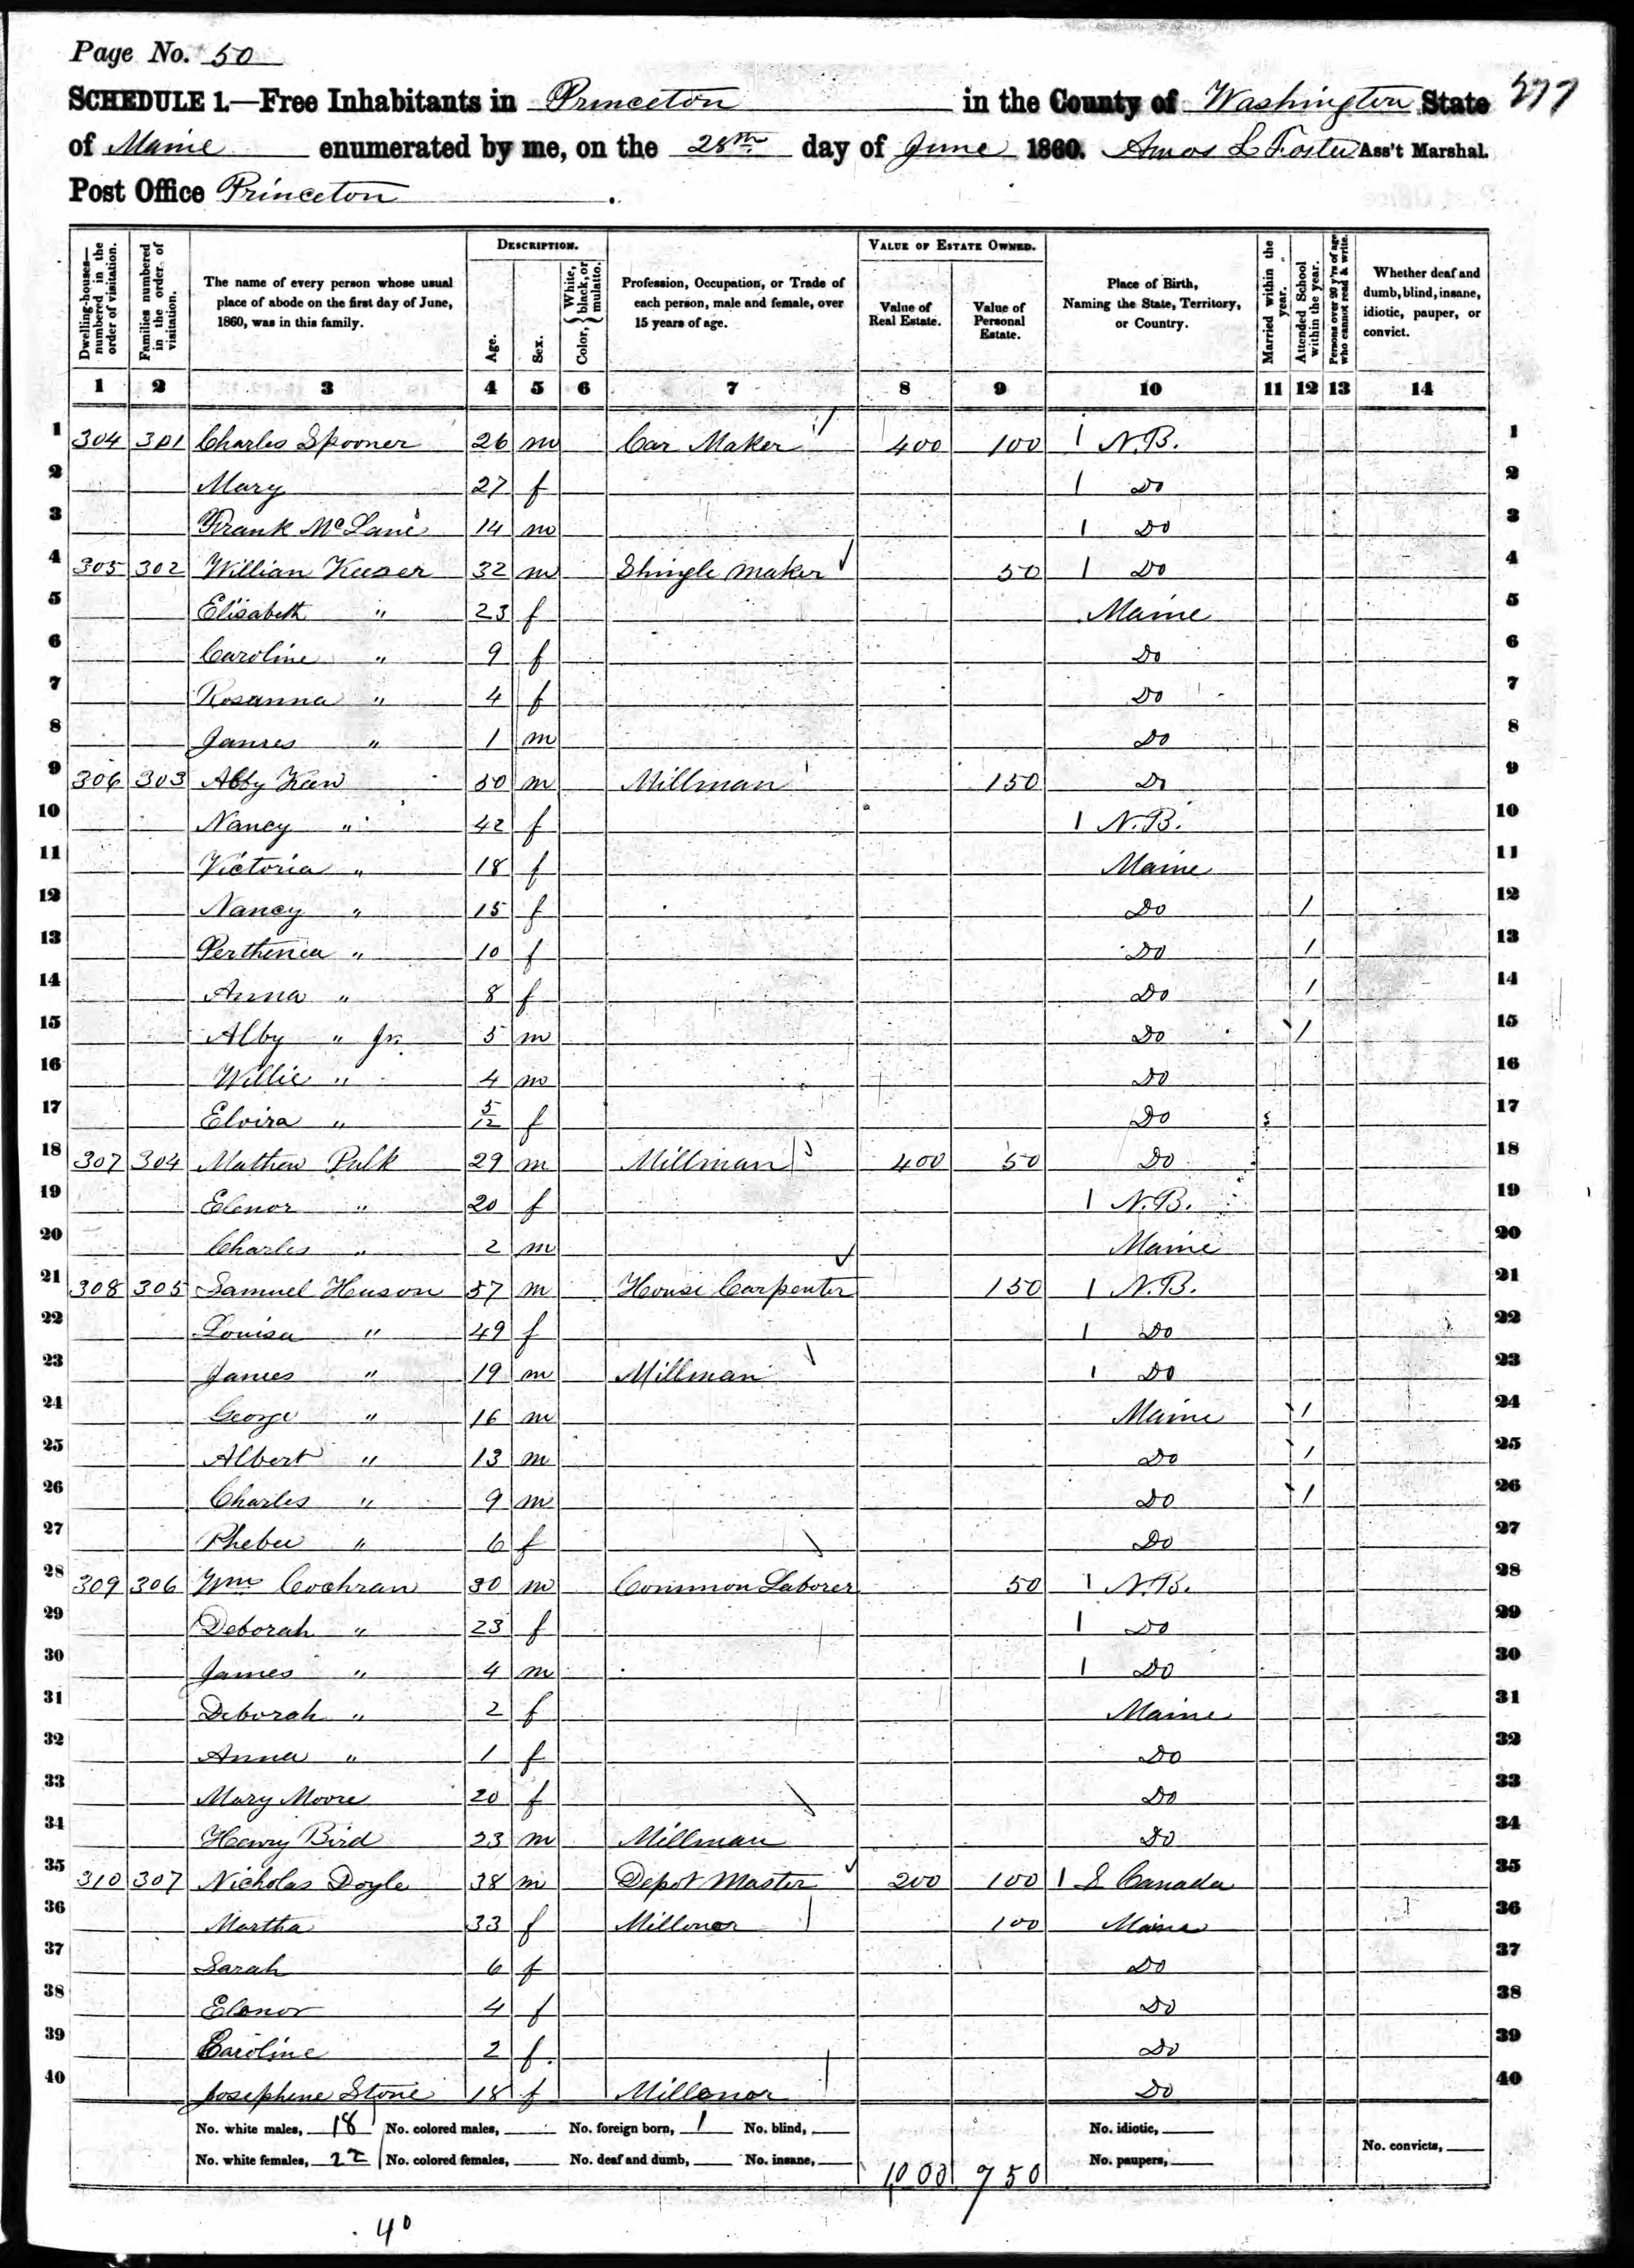 Page No. 50
SCHEDULE 1.—Free Inhabitants in Princeton in the County of Washington State
of Maine enumerated by me, on the 28th day of June 1860. Amos L Foster Ass't Marshal.
Post Office Princeton
Dwelling-houses—numbered in the order of visitation. Families numbered in the order of visitation. The name of every person whose usual place of abode on the first day of June, 1860, was in this family. DESCRIPTION. Age. Sex. Color, { White, black, or mulatto. Profession, Occupation, or Trade of each person, male and female, over 15 years of age. VALUE OF ESTATE OWNED. Value of Real Estate. Value of Personal Estate. Place of Birth, Naming the State, Territory, or Country. Married within the year. Attended School within the year. Persons over 20 y'rs of age who cannot read & write. Whether deaf and dumb, blind, insane, idiotic, pauper, or convict.
1 2 3 4 5 6 7 8 9 10 11 12 13 14
1 304 301 Charles Spooner 26 m Car Maker 400 100 1 N.B. 1
2 Mary 27 f 1 Do 2
3 Frank McLane 14 m 1 Do 3
4 305 302 Willian Keeser 32 m Shingle maker 50 1 Do 4
5 Elisabeth " 23 f Maine 5
6 Caroline " 9 f Do 6
7 Rosanna " 4 f Do 7
8 James " 1 m Do 8
9 306 303 Alby 50 m Millman 150 Do 9
10 Nancy " 42 f 1 N.B. 10
11 Victoria " 18 f Maine 11
12 Nancy " 15 f Do 1 12
13 Perthenia " 10 f Do 1 13
14 Anna " 8 f Do 1 14
15 Alby " Jr. 5 m Do 1 15
16 Willie " 4 m Do 16
17 Elvira " 5/12 f Do 17
18 307 304 Mathew Pulk 29 m Millman 400 50 Do 18
19 Elenor " 20 f 1 N.B. 19
20 Charles " 2 m Maine 20
21 308 305 Samuel Heuson 57 m House Carpenter 150 1 N.B. 21
22 Louisa " 49 f 1 Do 22
23 James " 19 m Millman 1 Do 23
24 George " 16 m Maine 1 24
25 Albert " 13 m Do 1 25
26 Charles " 9 m Do 1 26
27 Phebee " 6 f Do 27
28 309 306 Wm Cochran 30 m Common Laborer 50 1 N.B. 28
29 Deborah " 23 f 1 Do 29
30 James " 4 m 1 Do 30
31 Deborah " 2 f Maine 31
32 Anna " 1 f Do 32
33 Mary Moore 20 f Do 33
34 Henry Bird 23 m Millman Do 34
35 310 307 Nicholas Doyle 38 m Depot Master 200 100 1 Canada 35
36 Martha 33 f Millener 100 Maine 36
37 Sarah 6 f Do 37
38 Elenor 4 f Do 38
39 Caroline 2 f. Do 39
40 Josephine Stone 18 f Millenor Do 40
No. white males, 18 No. colored males, No. foreign born, 1 No. blind, No. idiotic,
No. white females, 22 No. colored females, No. deaf and dumb, No. insane, 1000 950 No. paupers, No. convicts,
40